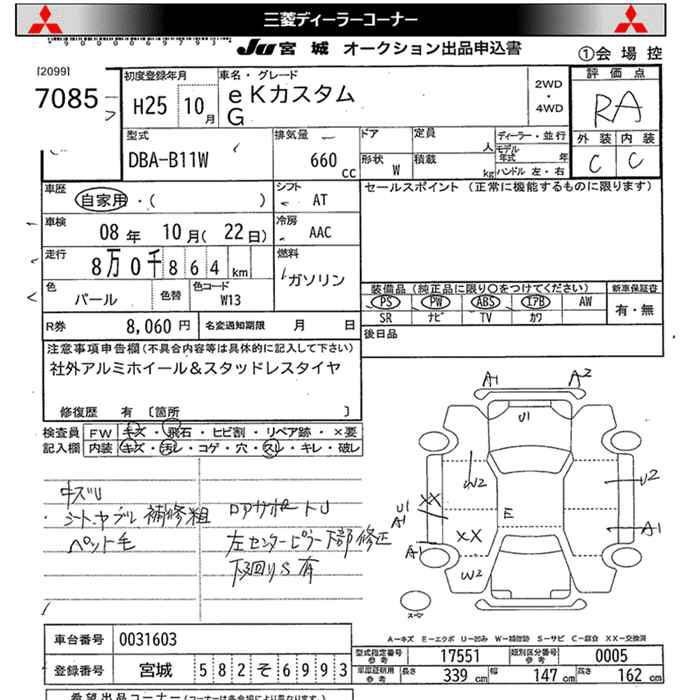 三菱ディーラーコーナー
JU 宮城 オークション出品申込書
①会場控
[2099]
7085
初度登録年月
H25 10月
車名・グレード
eKカスタム
G
2WD
・
4WD
評価点
RA
外装 内装
C C
型式
DBA-B11W
排気量
660 cc
ドア 定員 人
形状 W 積載 kg
ディーラー・並行
モデル年式 年
ハンドル 左・右
車歴
自家用・( )
シフト
AT
セールスポイント (正常に機能するものに限ります)
車検
08年 10月(22日)
冷房
AAC
走行
8万0千864km
燃料
ガソリン
色
パール
色替
色コード
W13
装備品(純正品に限り○をつけてください)
新車保証書
PS PW ABS エアB AW
SR ナビ TV カワ
有・無
R券 8,060円
名変通知期限 月 日
後日品
注意事項申告欄(不具合内容等は具体的に記入して下さい)
社外アルミホイール&スタッドレスタイヤ
修復歴 有 〔箇所 〕
検査員
記入欄
FW キズ・飛石・ヒビ割・リペア跡・×要
内装 キズ・汚レ・コゲ・穴・スレ・キレ・破レ
キズU
シート、ヤブレ補修粗
ペット毛
左センターピラー下部修正
下回りS有
A1 A2
U1
W2
U2
XX
U1
A1
E
XX
A1
A1
W2
スペアー
A-キズ E-エクボ U-凹み W-補修跡 S-サビ C-腐食 XX-交換済
車台番号 0031603
登録番号 宮城 582そ6993
型式指定番号 参考 17551
類別区分番号 参考 0005
車庫証明用 参考 長さ 339cm 幅 147cm 高さ 162cm
希望出品コーナー